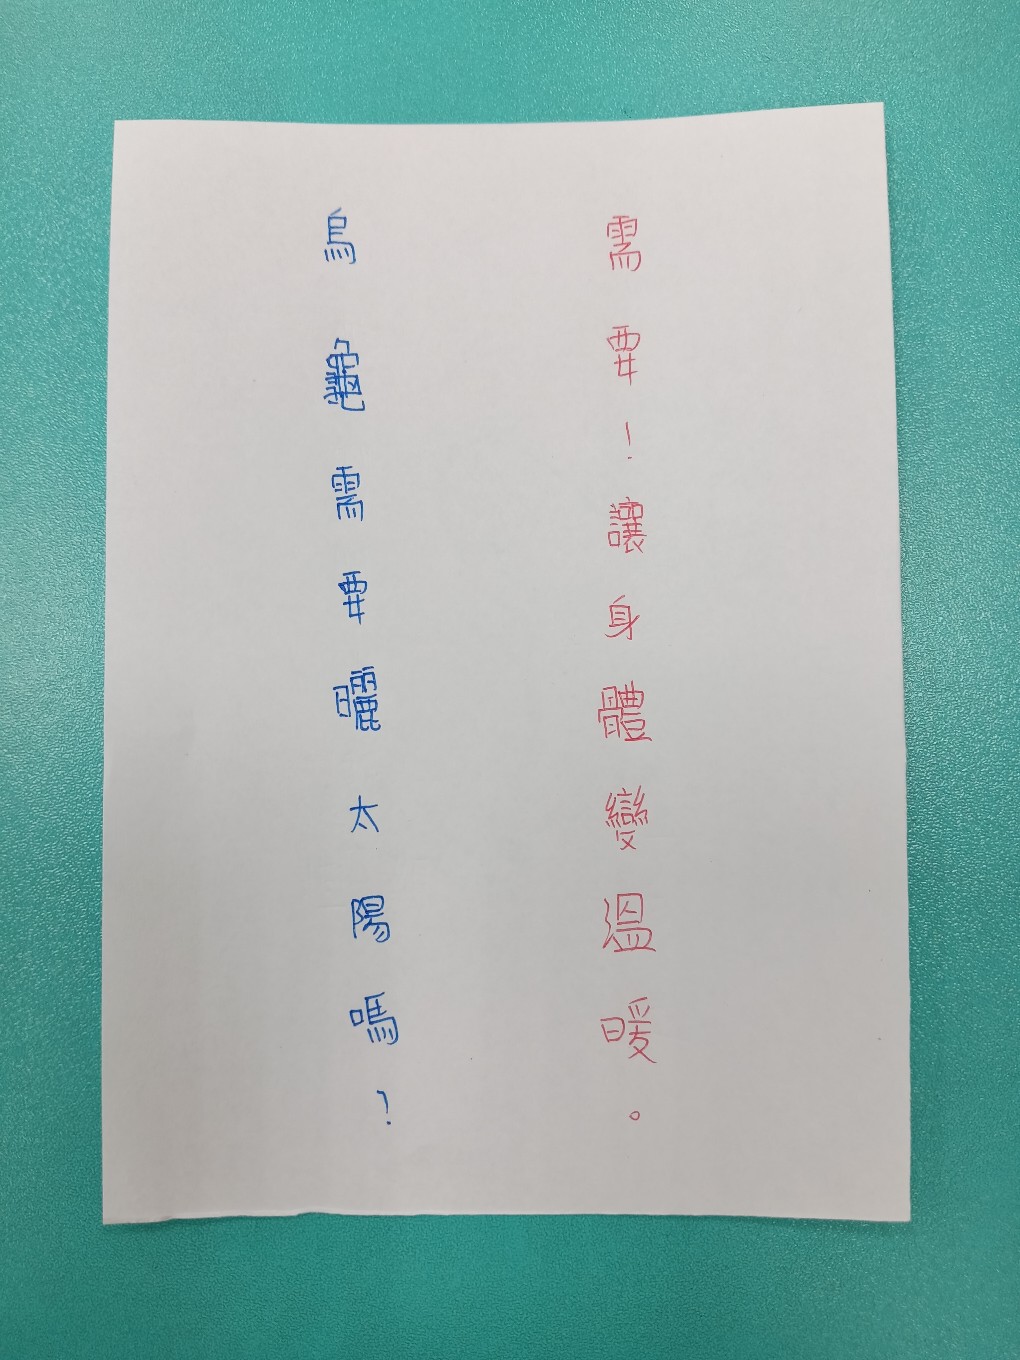 烏龜需要曬太陽嗎?
需要!讓身體變溫暖。